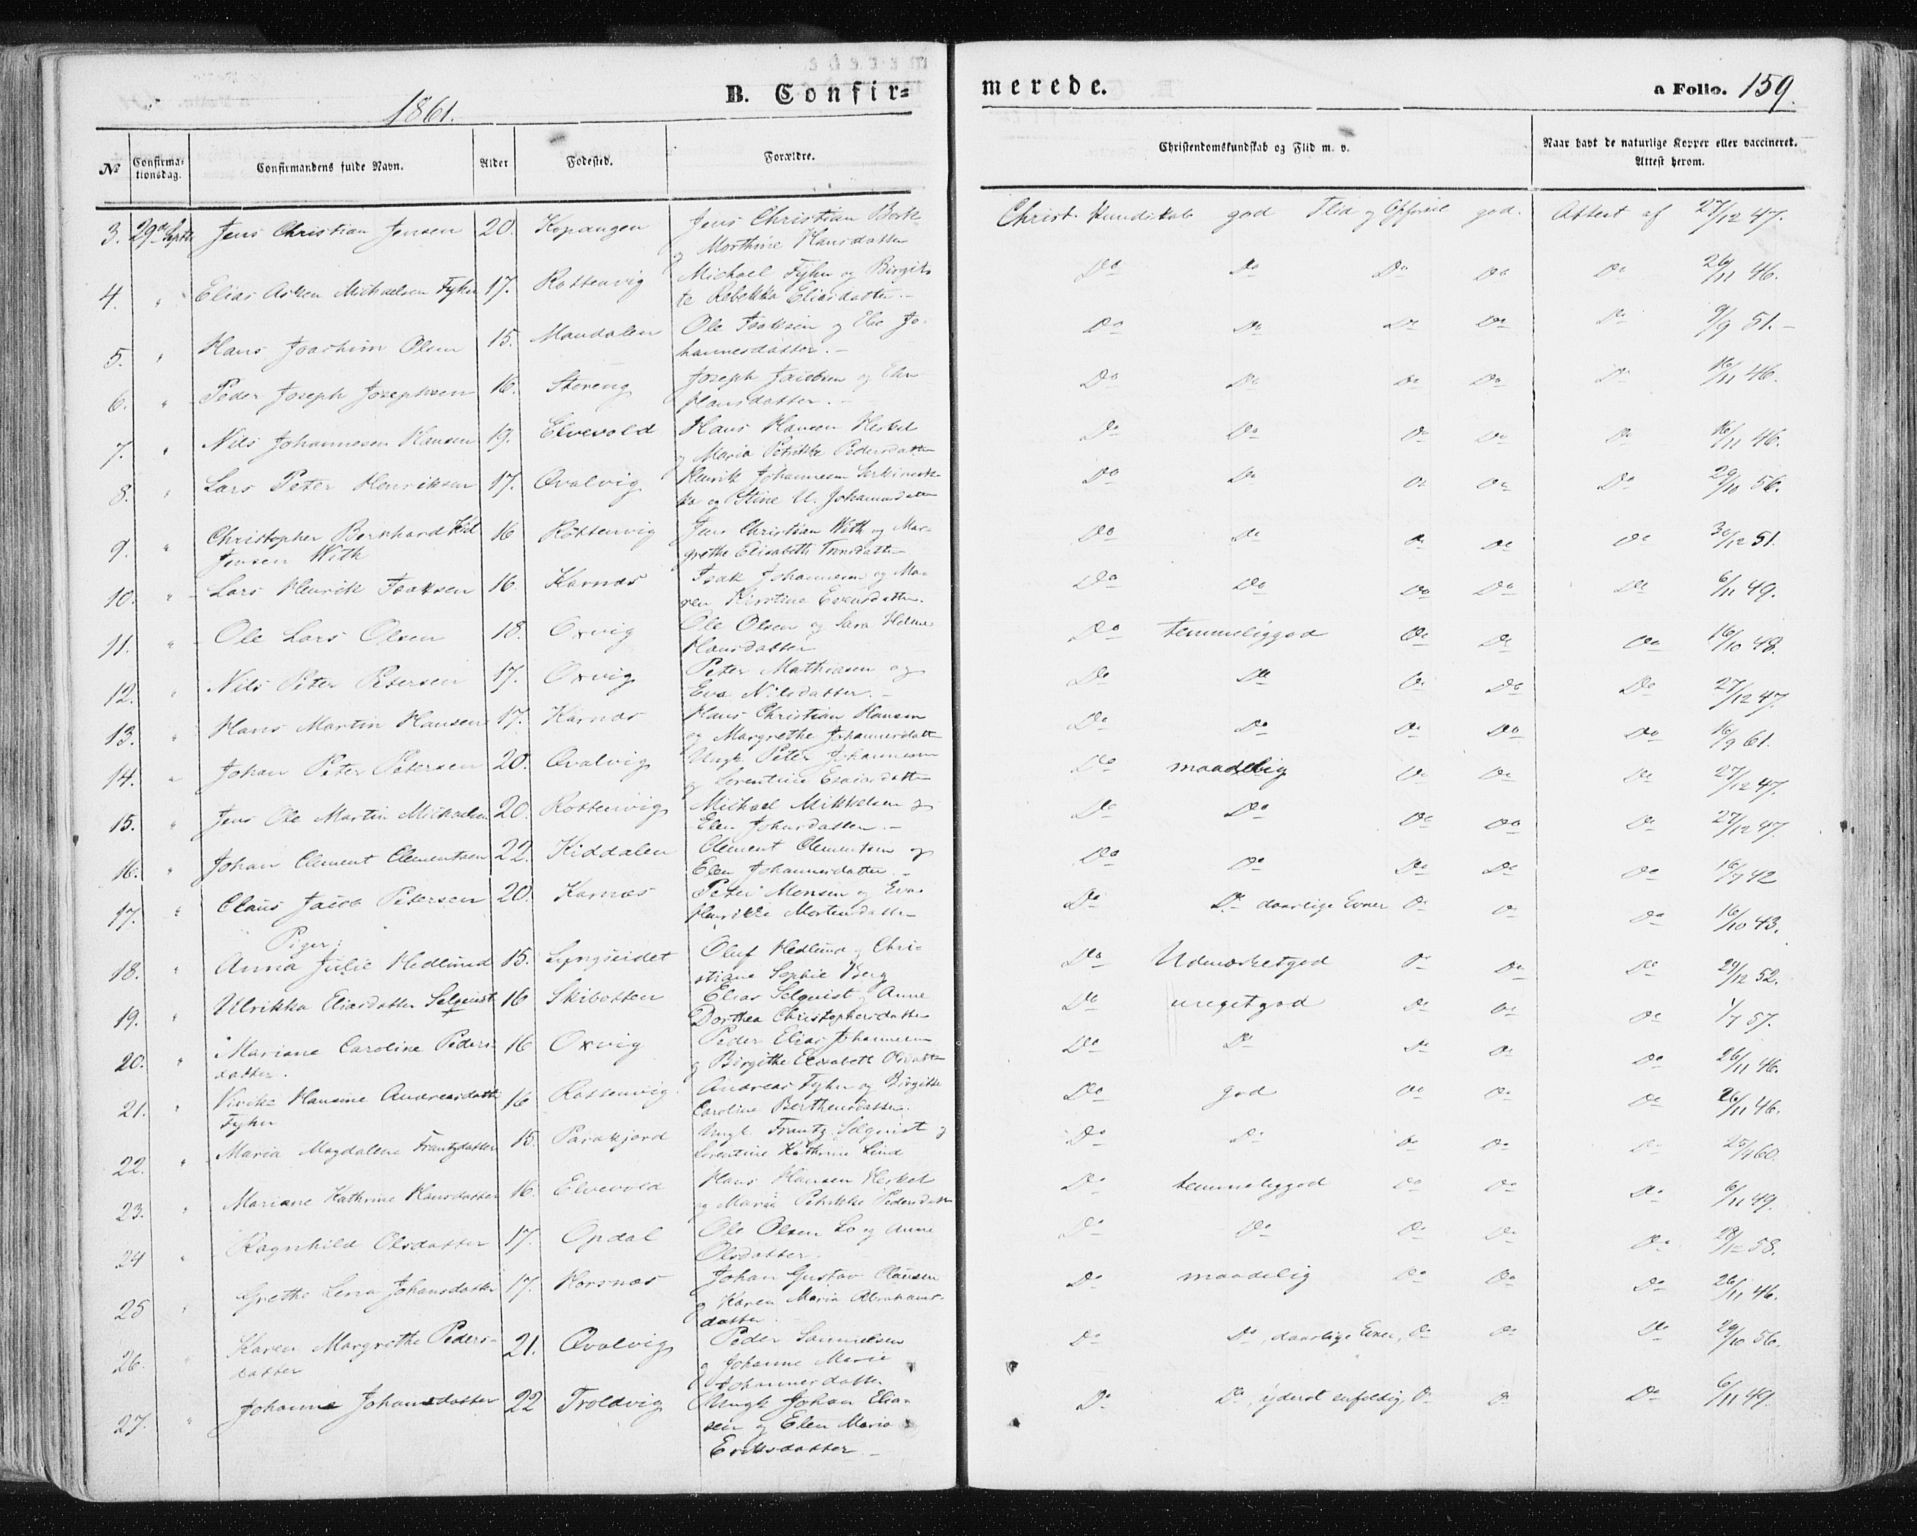 1861.
B. Confir=
merede.
a Folio. 159.
№ Confirma-tionsdag. Confirmandens fulde Navn. Alder Fødested. Forældre. Christendomskundskab og Flid m. v. Naar havt de naturlige Kopper eller vaccineret. Attest herom.
3. 29de Septr Jens Christian Jensen 20. Kopangen Jens Christian
& Morthine Hansdatter Christ. Kundskab god Flid og Opførsel god. Attest af 27/12 47.
4. " Elias Michaelsen Fyhn 17. Rottenvig Michael Fyhn og Birgit-
te Rebekka Eliasdatter.- Do Do Do Do Do 26/11 46.
5. " Hans Joachim Olsen 15. Mandalen Ole Isaksen og Else Jo-
hannesdatter.- Do Do Do Do Do 9/9 51.-
6. " Peder Joseph Josephsen 16. Storeng Joseph Jacobsen og
Hansdatter.- Do Do Do Do Do 16/11 46.
7. " Nils Johannesen Hansen 19. Elvevold Hans Hansen Heskel
& Maria Petrikke Pedersdatter Do Do Do Do Do 16/11 46.
8. " Lars Peter Henriksen 17. Qvalvig Henrik Johannesen
og Stine U. Johannesdatter Do Do Do Do Do 29/10 56.
9. " Christopher Bernhard Kiil
Jensen With 16 Rottenvig Jens Christian With og Mar-
grethe Elisabeth Tønsdatter Do Do Do Do Do 30/12 51.
10. " Lars Henrik Isaksen 16. Karnæs Isak Johannesen og Ma-
ren Kirstine Evensdatter. Do Do Do Do Do 6/11 49.
11. " Ole Lars Olsen 18. Oxvig Ole Olsen og Sara Helene
Hansdatter Do temmeliggod Do Do Do 16/10 48.
12. " Nils Peter Petersen 17. Oxvig Peter Mathisen og
Eva Nilsdatter.- Do Do Do Do Do 27/12 47.
13. " Hans Martin Hansen 17. Karnæs Hans Christian Hansen
og Margrethe Johannesdatter Do Do Do Do Do 16/9 61.
14. " Johan Peter Petersen 20. Qvalvig Ungk. Peter Johannesen
& Lorentine Esaiasdatter Do maadelig Do Do Do 27/12 47.
15. " Jens Ole Martin Michaelsen 20. Rottenvig Michael Mikkelsen og
Elen Johansdatter.- Do Do Do Do Do 27/12 47.
16. " Johan Clement Clementsen 22. Kiddalen Clement Clementsen og
Elen Johannesdatter.- Do Do Do Do Do 16/7 42
17. " Claus Jacob Petersen 20. Karnæs Peter Monsen og Eva
Henrikke Mortensdatter Do Do daarlige Evner Do Do Do 16/10 43.
Piger:
18. " Anna Julie Hedlund 15. Lyngseidet Oluf Hedlund og Chri-
stiane Sophie Berg Do Udmærketgod Do Do Do 29/12 52.
19. " Ulrikka Eliasdatter Selqvist 16 Skibotten Elias Selqvist og Anne
Dorthea Christophersdatter Do megetgod Do Do Do 1/7 57.
20. " Mariane Caroline Peders-
datter. 16 Oxvig Peder Elias Johannesen
& Birgithe Elisabeth Olsdatter Do Do Do Do Do 26/11 46.
21. " Vivike Hansine Andreasdatter
Fyhn 16 Rottenvig. Andreas Fyhn og Birgitte
Caroline Berthensdatter. Do god Do Do Do 26/11 46.
22. " Maria Magdalena Frantzdatter 15. Parakjord Ungk. Frantz Selqvist og
Lorentine Kathrine Lind Do Do Do Do Do 25/9 60.
23. " Mariane Kathrine Hansdatter 16. Elvevold Hans Hansen Heskel
og Maria Petrikke Pedersdatter Do temmeliggod Do Do Do 6/11 49.
24 " Ragnhild Olsdatter 17. Opdal Ole Olsen Lo og Anne
Olsdatter. Do Do Do Do Do 29/12 58.
25 " Grethe Lena Johansdatter 17. Korsnæs Johan Gustav Clausen
& Karen Maria Abrahams-
datter. Do maadelig Do Do Do 26/11 46.
26. " Karen Margrethe Peders-
datter 21. Qvalvig Peder Samuelsen
& Johanne Marie
Johannesdatter Do Do, daarlige Evner, Do Do Do 29/10 56.
27. " Johanne Johansdatter 22 Troldvig Ungk. Johan Elia-
sen og Elen Maria
Eriksdatter.- Do Do, yderst enfoldig Do Do Do 6/11 49.